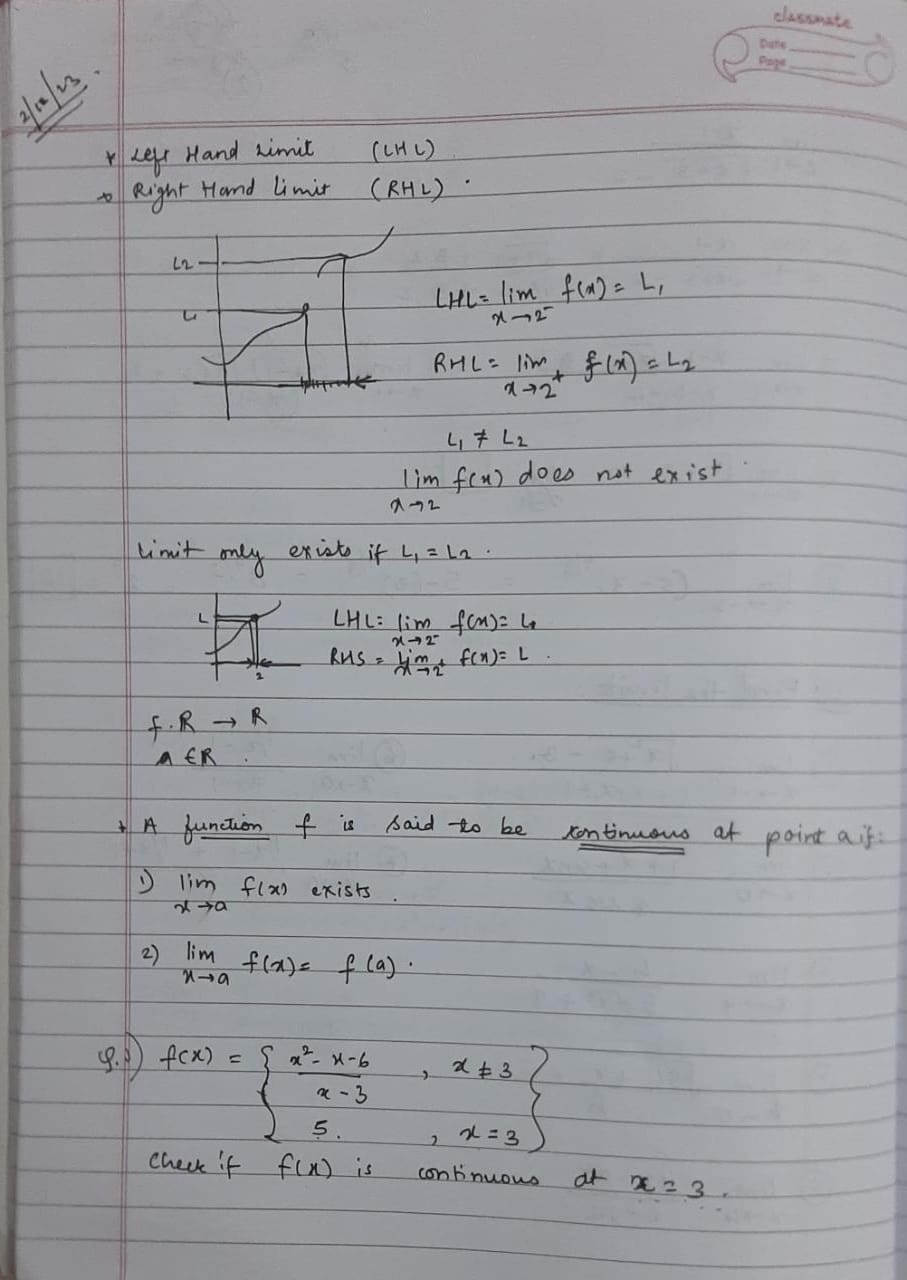 classmate
Date
Page
2/12/23.
* Left Hand Limit (LHL)
* Right Hand Limit (RHL).
L2
L1
LHL = lim f(x) = L1
x→2⁻
RHL = lim f(x) = L2
x→2⁺
L1 ≠ L2
lim f(x) does not exist.
x→2
Limit only exists if L1 = L2.
L
2
LHL: lim f(x) = L
x→2⁻
RHS = lim f(x) = L.
x→2⁺
f.R → R
a ∈ R.
* A function f is said to be continuous at point a if:
1) lim f(x) exists.
x→a
2) lim f(x) = f(a).
x→a
Q.) f(x) = { x² - x - 6 , x ≠ 3 }
x - 3
5. , x = 3
Check if f(x) is continuous at x = 3.